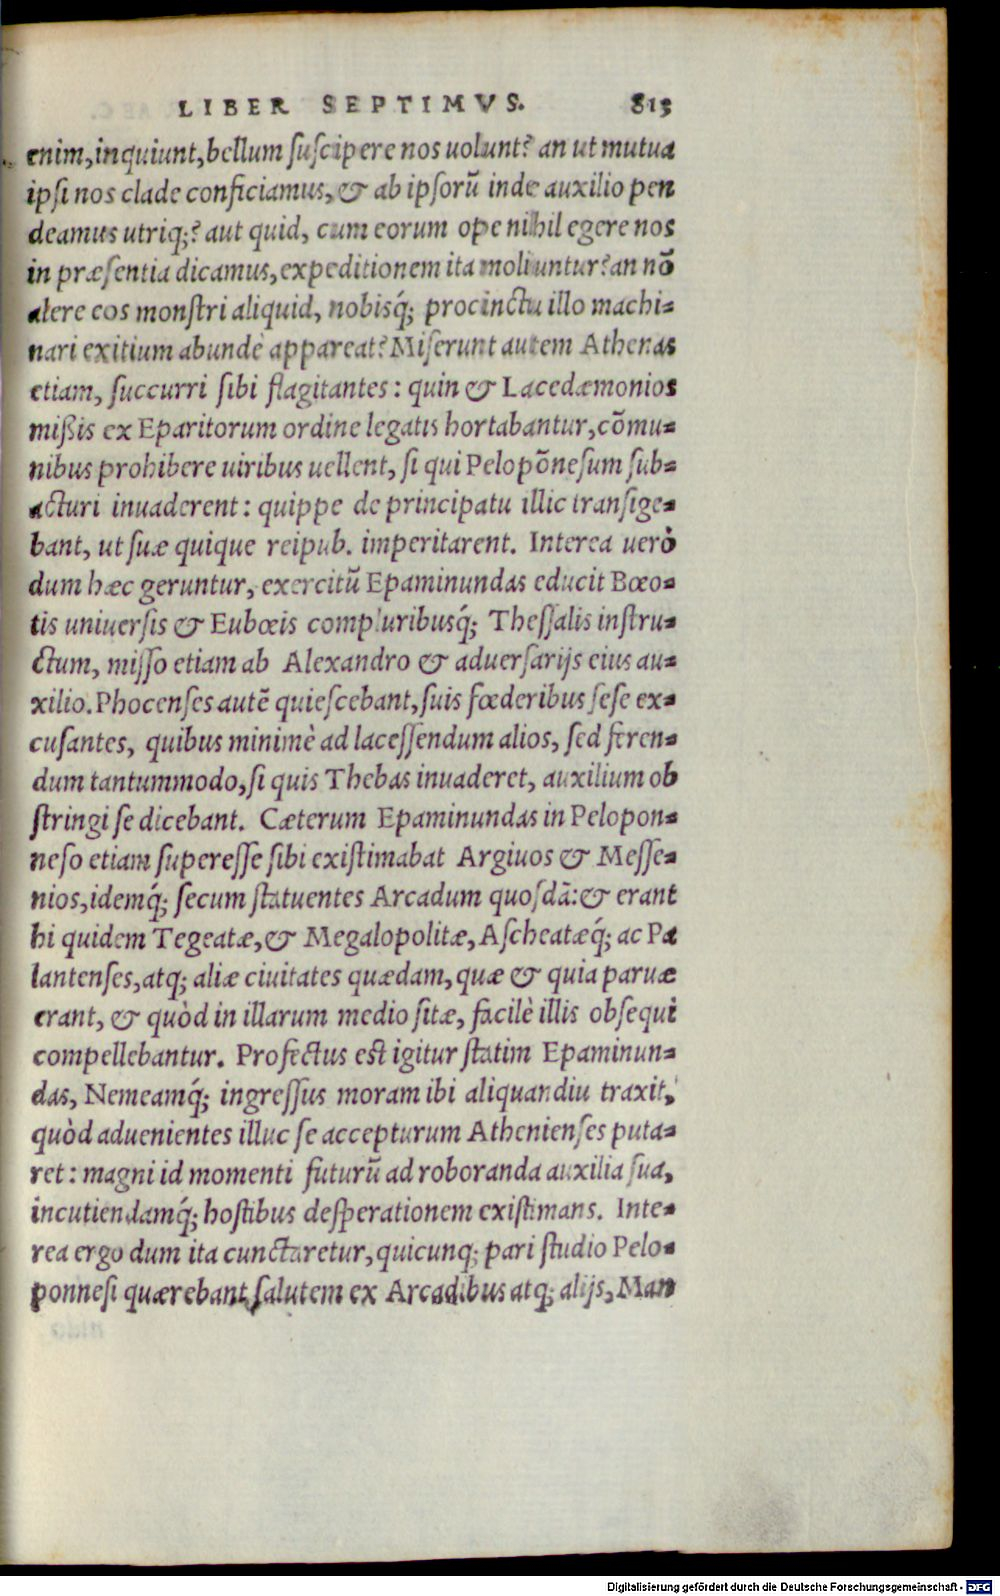 LIBER SEPTIMVS. 813
enim, inquiunt, bellum ſuſcipere nos uolunt? an ut mutua
ipſi nos clade conficiamus, & ab ipſorū inde auxilio pen
deamus utriq;? aut quid, cum eorum ope nihil egere nos
in præſentia dicamus, expeditionem ita moliuntur? an nō
alere eos monſtri aliquid, nobisq́; procinctu illo machi-
nari exitium abundè appareat? Miſerunt autem Athenas
etiam, ſuccurri ſibi flagitantes: quin & Lacedæmonios
mißis ex Eparitorum ordine legatis hortabantur, cōmu-
nibus prohibere uiribus uellent, ſi qui Pelopōneſum ſub-
acturi inuaderent: quippe de principatu illic tranſige-
bant, ut ſuæ quique reipub. imperitarent. Interea uerò
dum hæc geruntur, exercitū Epaminundas educit Bœo-
tis uniuerſis & Eubœis compluribusq́; Theſſalis inſtru-
ctum, miſſo etiam ab Alexandro & aduerſarijs eius au-
xilio. Phocenſes autē quieſcebant, ſuis fœderibus ſeſe ex-
cuſantes, quibus minimè ad laceſſendum alios, ſed feren-
dum tantummodo, ſi quis Thebas inuaderet, auxilium ob
ſtringi ſe dicebant. Cæterum Epaminundas in Pelopon-
neſo etiam ſupereſſe ſibi exiſtimabat Argiuos & Meſſe-
nios, idemq́; ſecum ſtatuentes Arcadum quoſdā: & erant
hi quidem Tegeatæ, & Megalopolitæ, Aſcheatæq́; ac Pa
lantenſes, atq; aliæ ciuitates quædam, quæ & quia paruæ
erant, & quòd in illarum medio ſitæ, facilè illis obſequi
compellebantur. Profectus eſt igitur ſtatim Epaminun-
das, Nemeamq́; ingreſſus moram ibi aliquandiu traxit,
quòd aduenientes illuc ſe accepturum Athenienſes puta-
ret: magni id momenti futurū ad roboranda auxilia ſua,
incutiendamq́; hoſtibus deſperationem exiſtimans. Inte-
rea ergo dum ita cunctaretur, quicunq; pari ſtudio Pelo-
ponneſi quærebant ſalutem ex Arcadibus atq; alijs, Man
Digitalisierung gefördert durch die Deutsche Forschungsgemeinschaft - DFG